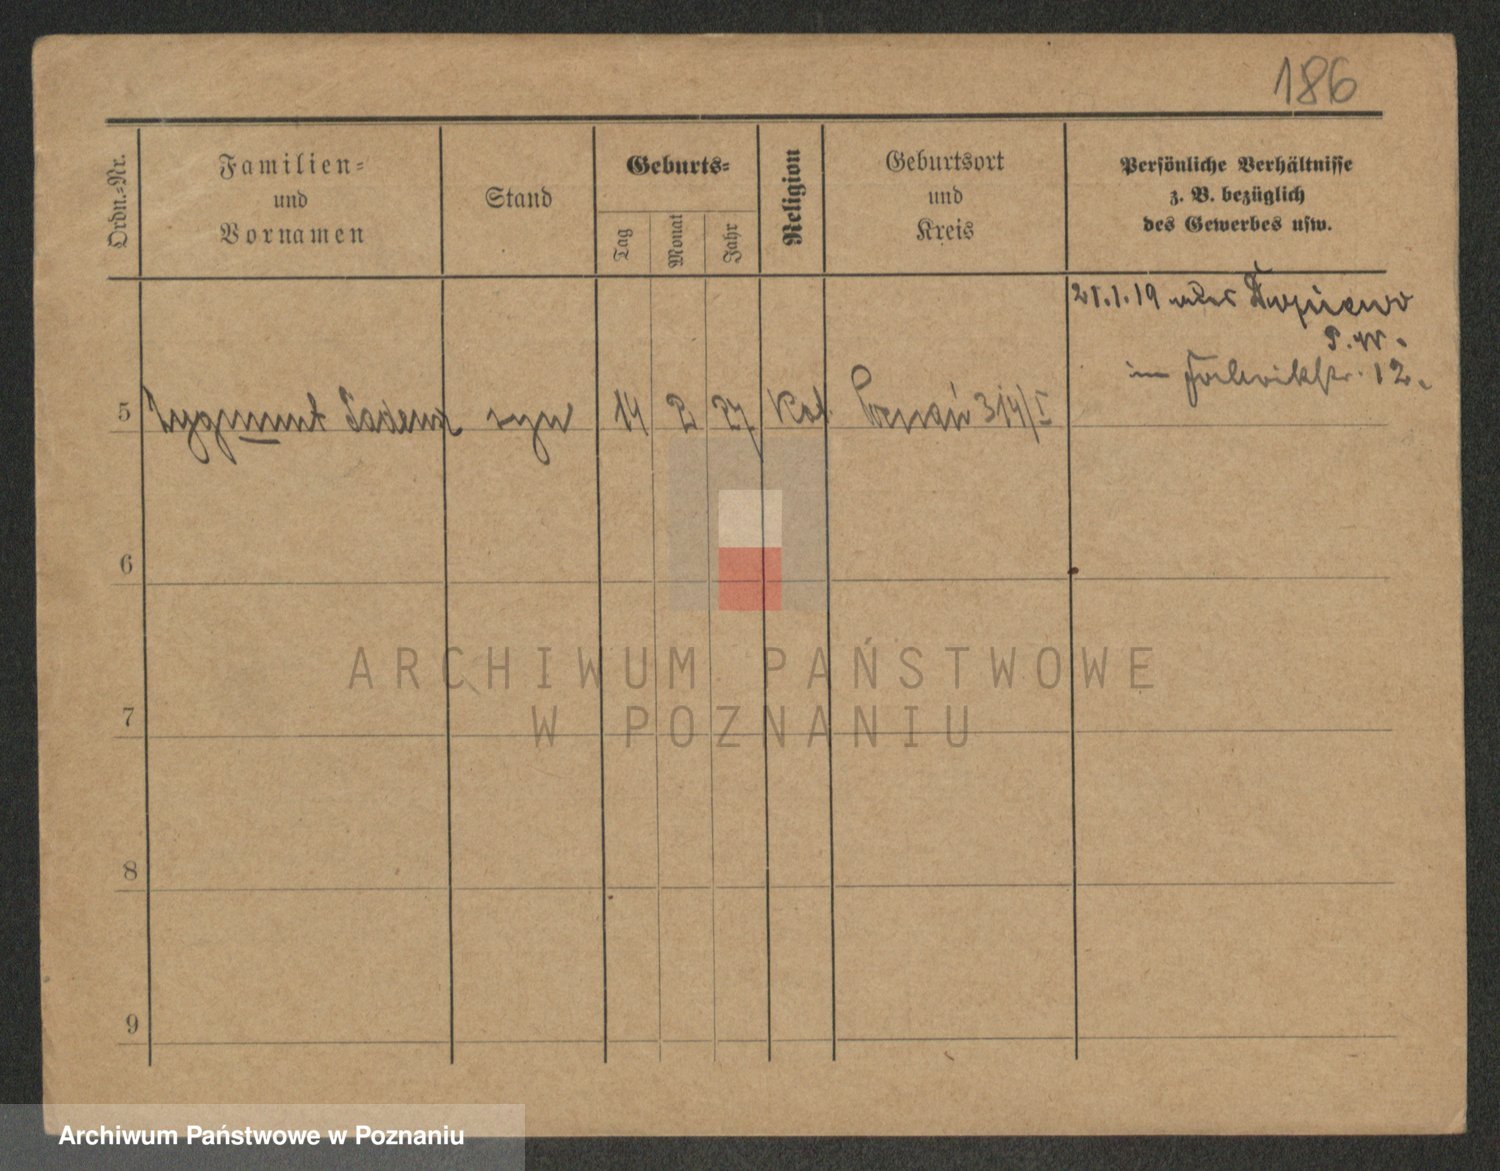 186
Ordn.=Nr.
Familien=
und
Vornamen
Stand
Geburts=
Tag
Monat
Jahr
Religion
Geburtsort
und
Kreis
Persönliche Verhältnisse
z. B. bezüglich
des Gewerbes usw.
21.1.19
P. W.
im 12.
5 Zygmunt Tadeusz syn 14 2 27 Kat. Poznań 314/I
6
7
8
9
ARCHIWUM PAŃSTWOWE
W POZNANIU
Archiwum Państwowe w Poznaniu